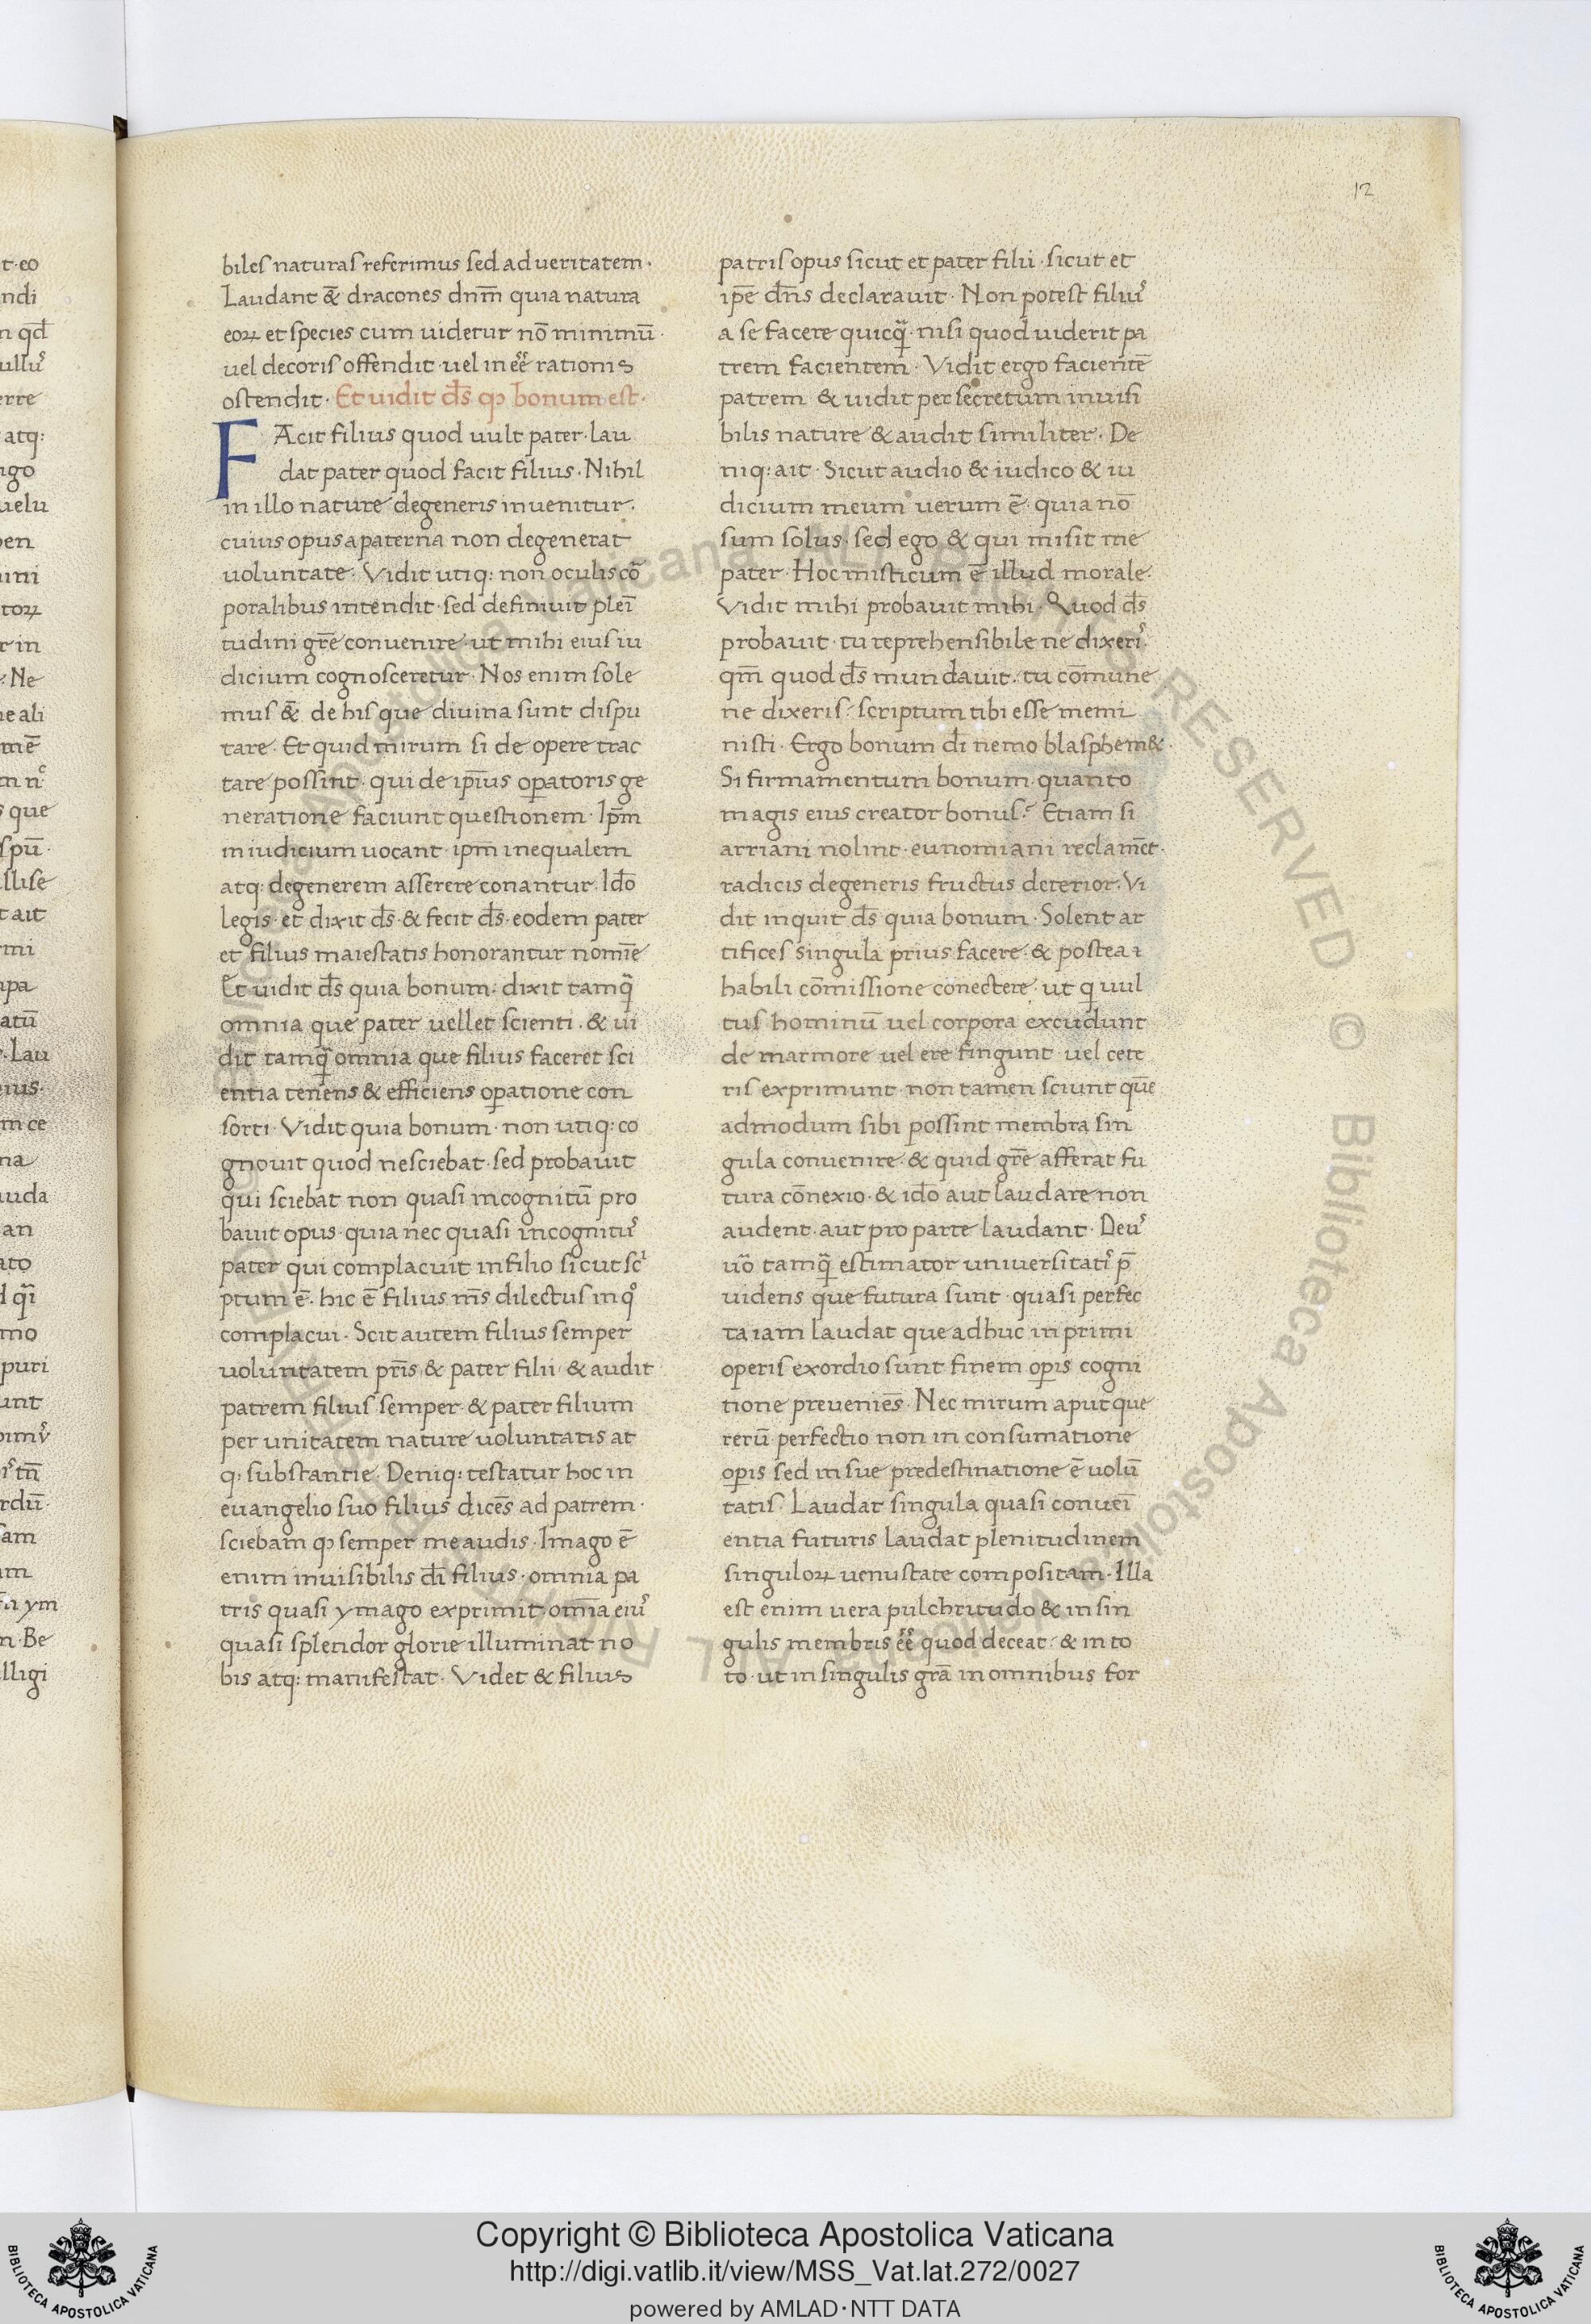 12
biles naturas referimus sed ad ueritatem·
Laudant &̄ dracones dn̄m quia natura
eoꝝ et species cum uidetur nō minimū·
uel decoris offendit· uel in eē̄ rationis
ostendit· Et uidit d̄s ꝙ bonum est·
FAcit filius quod uult pater· lau
dat pater quod facit filius· Nihil
in illo nature degeneris inuenitur·
cuius opus a paterna non degenerat
uoluntate· Vidit utiq: non oculis cō
poralibus intendit· sed definiuit pleī
tudini gr̄e conuenire· ut mihi eius iu
dicium cognosceretur· Nos enim sole
mus &̄ de his que diuina sunt dispu
tare· Et quid mirum si de opere trac
tare possint· qui de ip̄ius oꝑatoris ge
neratione faciunt questionem· Ip̄m
in iudicium uocant· ip̄m inequalem
atq: degenerem asserere conantur· Id̄o
legis· et dixit d̄s· & fecit d̄s· eodem pater
et filius maiestatis honorantur nomīe
Et uidit d̄s quia bonum· dixit tamq̄
omnia que pater uellet scienti· & ui
dit tamq̄ omnia que filius faceret sci
entia tenens & efficiens oꝑatione con
sorti· Vidit quia bonum· non utiq: co
gnouit quod nesciebat· sed probauit
qui sciebat non quasi incognitū pro
bauit opus· quia nec quasi incognitus
pater qui complacuit in filio sicut sc
ptum ē· hic ē filius m̄s dilectus in qͦ
complacui· Scit autem filius semper
uoluntatem pr̄is & pater filii & audit
patrem filius semper & pater filium
per unitatem nature uoluntatis at
q: substantie· Deniq: testatur hoc in
euangelio suo filius dicēs ad patrem·
sciebam ꝙ semper me audis· Imago ē
enim inuisibilis d̄i filius· omnia pa
tris quasi ymago exprimit· om̄ia eius
quasi splendor glorie illuminat no
bis atq: manifestat· Videt & filius
patris opus sicut et pater filii· sicut et
ip̄e dn̄s declarauit· Non potest filius
a se facere quicq̄· nisi quod uiderit pa
trem facientem· Vidit ergo facientē
patrem & uidit per secretum inuisi
bilis nature & audit similiter· De
niq: ait· Sicut audio & iudico & iu
dicium meum uerum ē· quia nō
sum solus· sed ego & qui misit me
pater· Hoc misticum ē illud morale·
Vidit mihi probauit mihi· Quod d̄s
probauit· tu reprehensibile ne dixeris·
qm̄ quod d̄s mundauit· tu cōmune
ne dixeris· scriptum tibi esse memi
nisti· Ergo bonum d̄i nemo blasphem&·
Si firmamentum bonum· quanto
magis eius creator bonus? Etiam si
arriani nolint· eunomiani reclam̄et·
radicis degeneris fructus deterior· Vi
dit inquit d̄s quia bonum· Solent ar
tifices singula prius facere· & postea
habili cōmissione conectere· ut qui uul
tus hominū uel corpora excudunt
de marmore uel ere fingunt uel cete
ris exprimunt· non tamen sciunt quē
admodum sibi possint membra sin
gula conuenire & quid gr̄e afferat fu
tura cōnexio· & id̄o aut laudare non
audent· aut pro parte laudant· Deus
uͦ tamq̄ estimator uniuersitatis p̄
uidens que futura sunt· quasi perfec
ta iam laudat que adhuc in primi
operis exordio sunt finem oꝑis cogni
tione preueniēs· Nec mirum aput que
rerū perfectio non in consumatione
oꝑis sed in sue predestinatione ē uolū
tatis· Laudat singula quasi conueī
entia futuris· laudat plenitudinem
singuloꝝ uenustate compositam· Illa
est enim uera pulchritudo & in sin
gulis membris eē̄ quod deceat· & in to
to· ut in singulis gr̄a in omnibus for
Copyright © Biblioteca Apostolica Vaticana
http://digi.vatlib.it/view/MSS_Vat.lat.272/0027
powered by AMLAD·NTT DATA
BIBLIOTECA APOSTOLICA VATICANA
BIBLIOTECA APOSTOLICA VATICANA